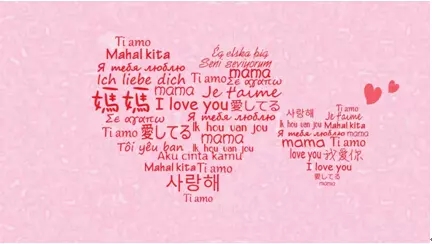 Ti amo
Mahal kita
Ég elska þig
Seni seviyorum
Я тебя люблю
mama
Ich liebe dich
Ti amo
Σε αγαπω
媽媽
mama
Je t'aime
I love you
愛してる
Σε αγαπω
Я тебя люблю
Ti amo
愛してる
Ik hou van jou
Tôi yêu bạn
mama
Ik hou van jou
Aku cinta kamu
Mahal kita
Ti amo
사랑해
Ti amo
사랑해
Ti amo
Je t'aime
Ik hou van jou
Mahal kita
Я тебя люблю
mama
mama
Ti amo
love you
我爱你
I love you
愛してる
mama